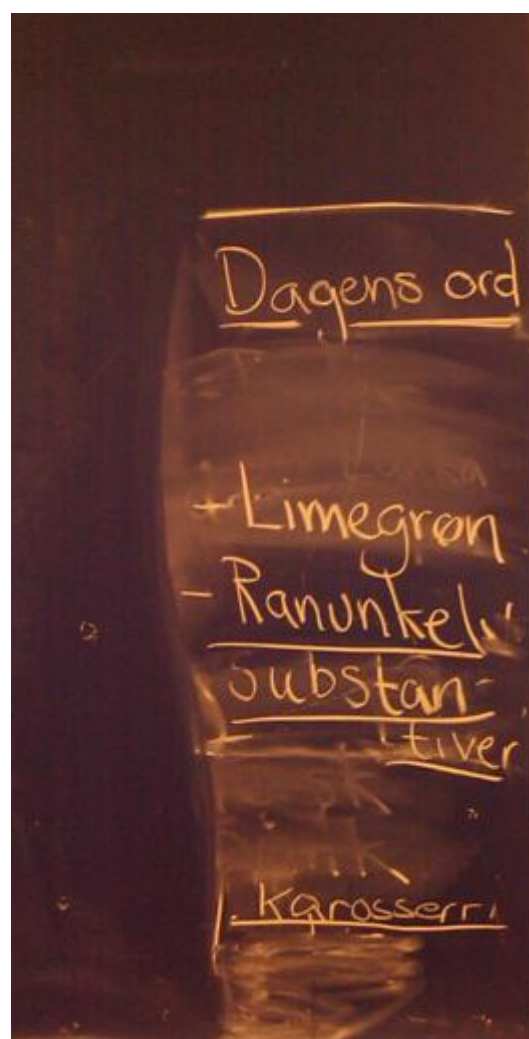 Dagens ord
+ Limegrøn
- Ranunkel
substan-
tiver
Karosserri